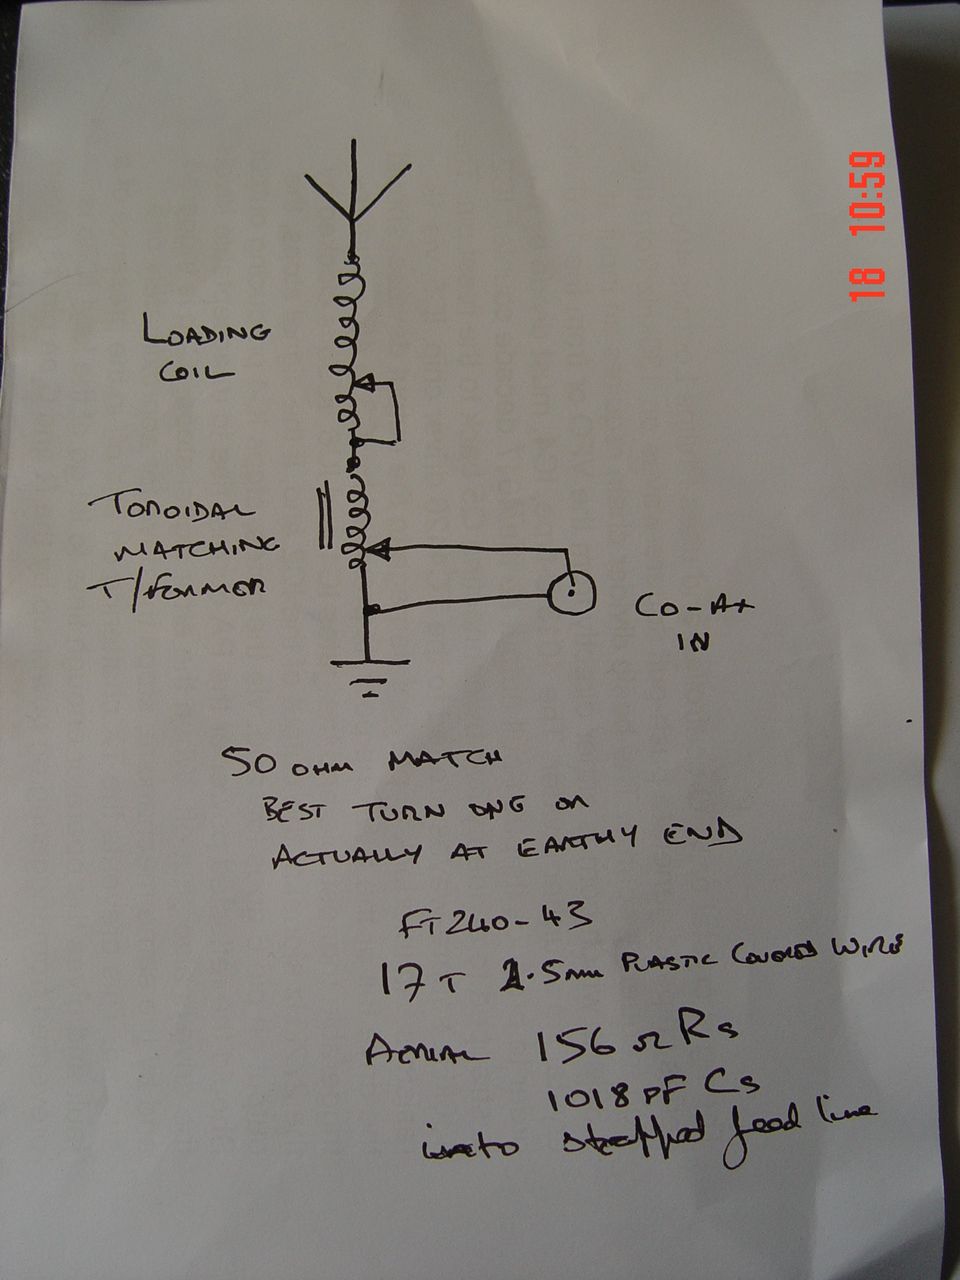 18 10:59
LOADING
COIL
TOROIDAL
MATCHING
T/FORMER
CO-AX
IN
50 OHM MATCH
BEST TURN ONG ON
ACTUALLY AT EARTHY END
FT240-43
17 T 1.5mm PLASTIC COVERED WIRE
AERIAL 156 Ω Rs
1018 pF Cs
into strapped feed line